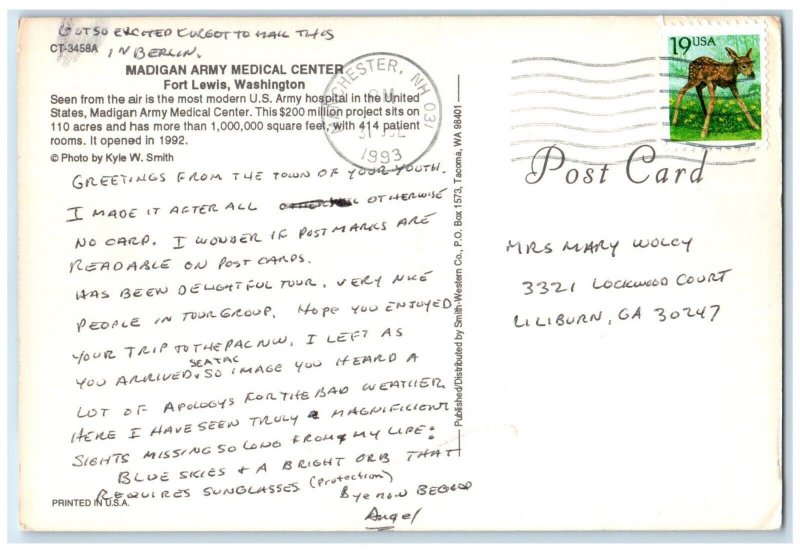 GOT SO EXCITED FORGOT TO MAIL THIS
IN BERLIN.
CT-3458A
MADIGAN ARMY MEDICAL CENTER
Fort Lewis, Washington
Seen from the air is the most modern U.S. Army hospital in the United
States, Madigan Army Medical Center. This $200 million project sits on
110 acres and has more than 1,000,000 square feet, with 414 patient
rooms. It opened in 1992.
© Photo by Kyle W. Smith
GREETINGS FROM THE TOWN OF YOUR YOUTH.
I MADE IT AFTER ALL OTHERWISE
NO CARD. I WONDER IF POSTMARKS ARE
READABLE ON POST CARDS.
HAS BEEN DELIGHTFUL TOUR. VERY NICE
PEOPLE IN TOUR GROUP. HOPE YOU ENJOYED
YOUR TRIP TO THE PAC N.W. I LEFT AS
SEATAC
YOU ARRIVED. SO IMAGE YOU HEARD A
LOT OF APOLOGYS FOR THE BAD WEATHER
HERE I HAVE SEEN TRULY MAGNIFICIENT
SIGHTS MISSING SO LONG FROM MY LIFE:
BLUE SKIES + A BRIGHT ORB THAT
REQUIRES SUNGLASSES (protection)
Bye now
Angel
PRINTED IN U.S.A.
Published/Distributed by Smith-Western Co., P.O. Box 1573, Tacoma, WA 98401
MANCHESTER, NH 031
PM
1993
19 USA
Post Card
MRS MARY WOLCY
3321 LOCKWOOD COURT
LILIBURN, GA 30247